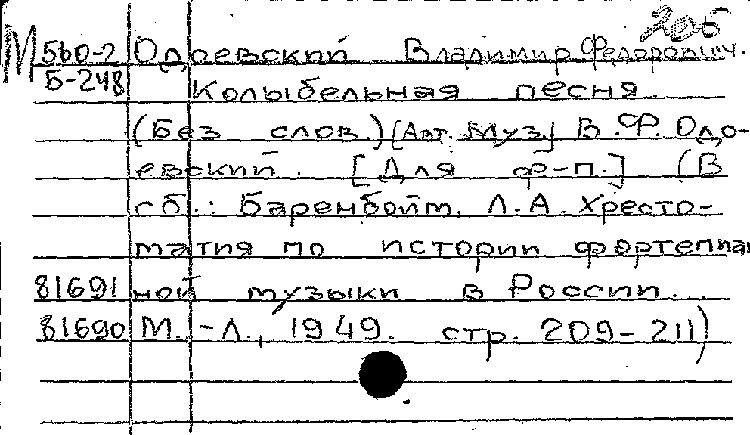 205
М 560-2 Одоевский Владимир Федорович.
Б-248 Колыбельная песня.
(Без слов.) [Авт. муз] В.Ф. Одо-
евский. [Для ф-п.] (В
сб.: Баренбойм, Л.А. Хресто-
матия по истории фортепиан
81691 ной музыки в России.
81690 М.-Л., 1949. стр. 209-211)